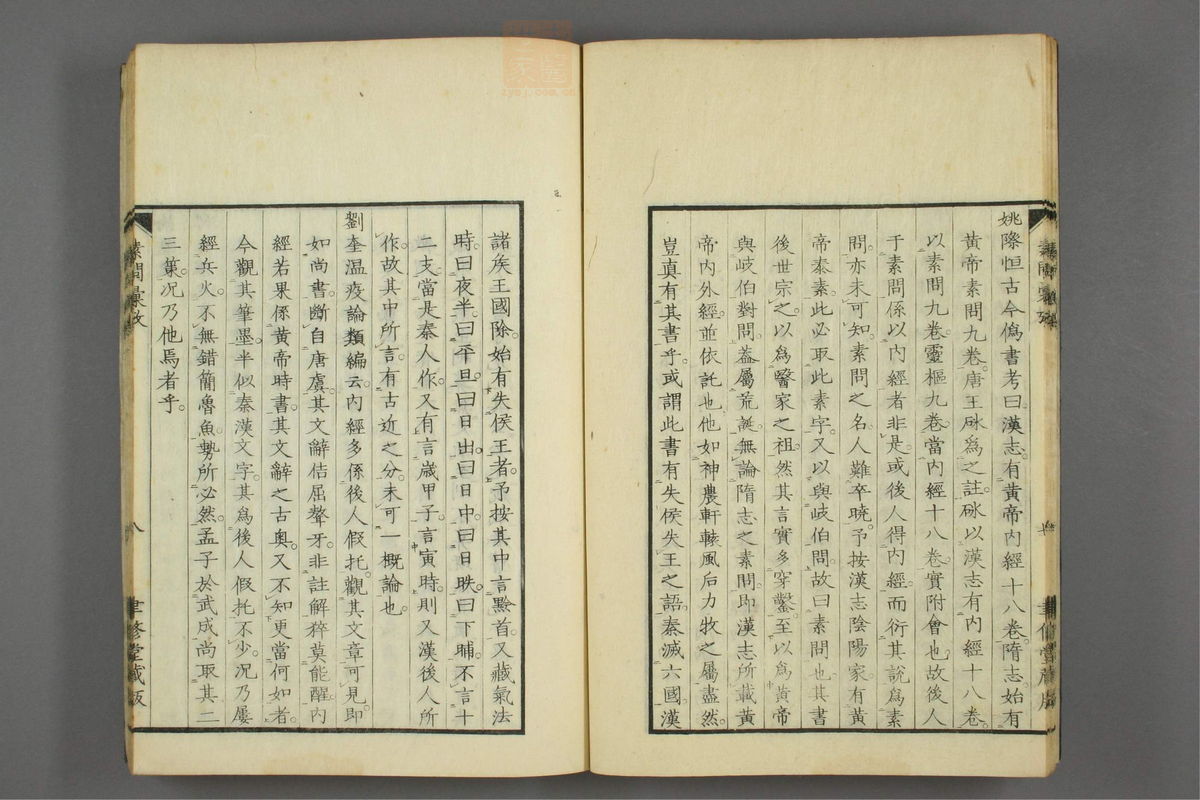 姚際恒古今僞書考曰漢志有黃帝內經十八卷隋志始有
黃帝素問九卷唐王砅爲之註砅以漢志有內經十八卷
以素問九卷靈樞九卷當內經十八卷實附會也故後人
于素問係以內經者非是或後人得內經而衍其說爲素
問亦未可知素問之名人難卒曉予按漢志陰陽家有黃
帝泰素此必取此素字又以與岐伯問故曰素問也其書
後世宗之以爲醫家之祖然其言實多穿鑿至以爲黃帝
與岐伯對問蓋屬荒誕無論隋志之素問即漢志所載黃
帝內外經並依託也他如神農軒轅風后力牧之屬盡然
豈眞有其書乎或謂此書有失侯失王之語秦滅六國漢
諸矦王國除始有失侯王者予按其中言黔首又藏氣法
時曰夜半曰平旦曰日出曰日中曰日昳曰下晡不言十
二支當是秦人作又有言歲甲子言寅時則又漢後人所
作故其中所言有古近之分未可一概論也
劉奎溫疫論類編云內經多係後人假托觀其文章可見即
如尚書斷自唐虞其文辭佶屈聱牙非註解猝莫能醒內
經若果係黃帝時書其文辭之古奧又不知更當何如者
今觀其筆墨半似秦漢文字其爲後人假托不少況乃屢
經兵火不無錯簡魯魚勢所必然孟子於武成尚取其二
三策況乃他焉者乎
素問彙攷
八
聿修堂藏版